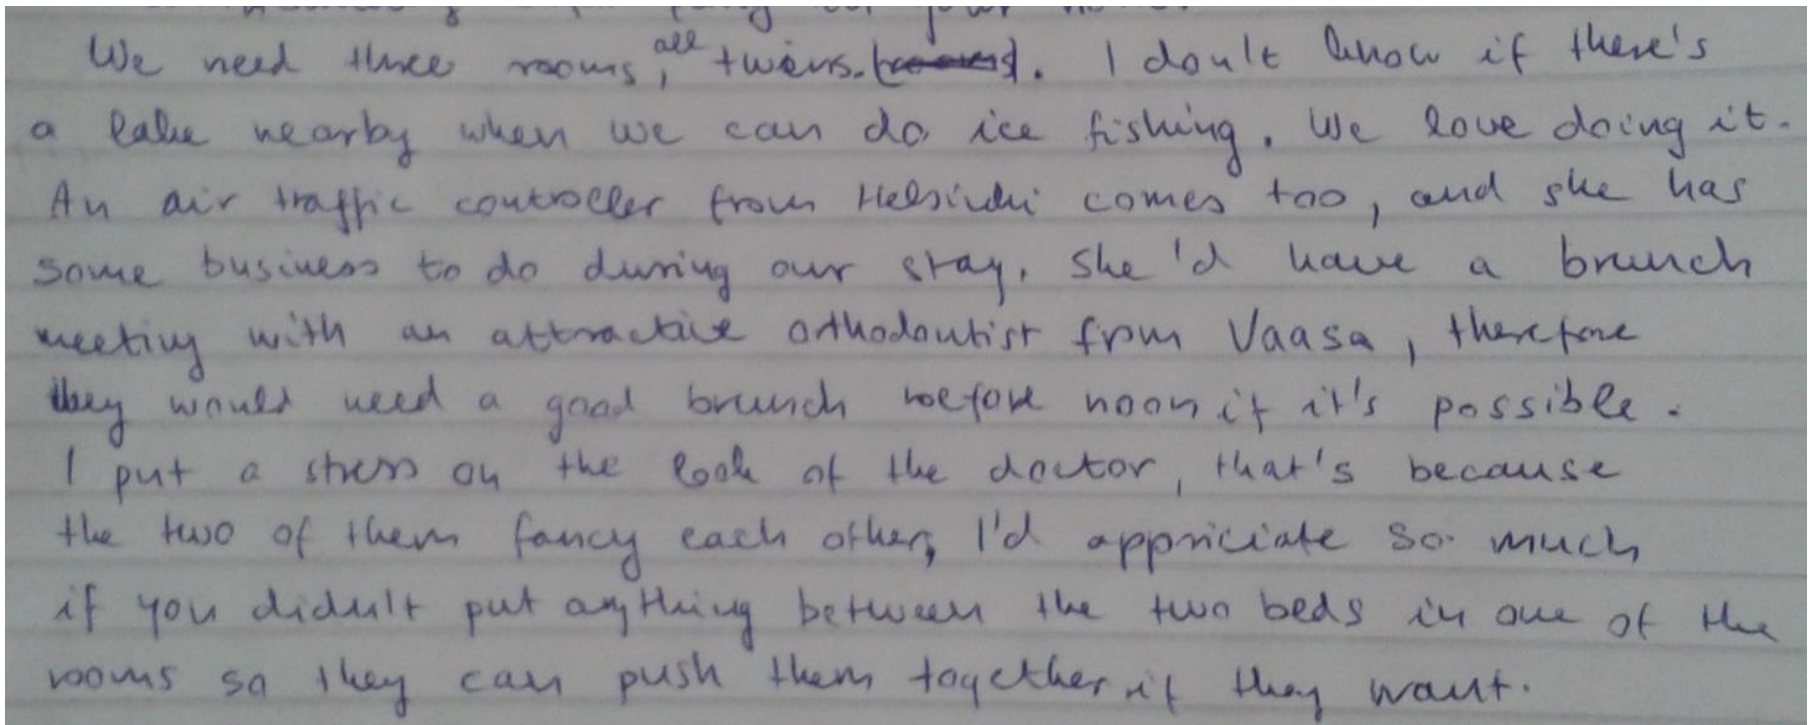 We need three rooms, all twins. I don't know if there's
a lake nearby when we can do ice fishing. We love doing it.
An air traffic controller from Helsinki comes too, and she has
some business to do during our stay. She'd have a brunch
meeting with an attractive orthodontist from Vaasa, therefore
they would need a good brunch before noon if it's possible.
I put a stress on the look of the doctor, that's because
the two of them fancy each other, I'd appriciate so much
if you didn't put anything between the two beds in one of the
rooms so they can push them together if they want.